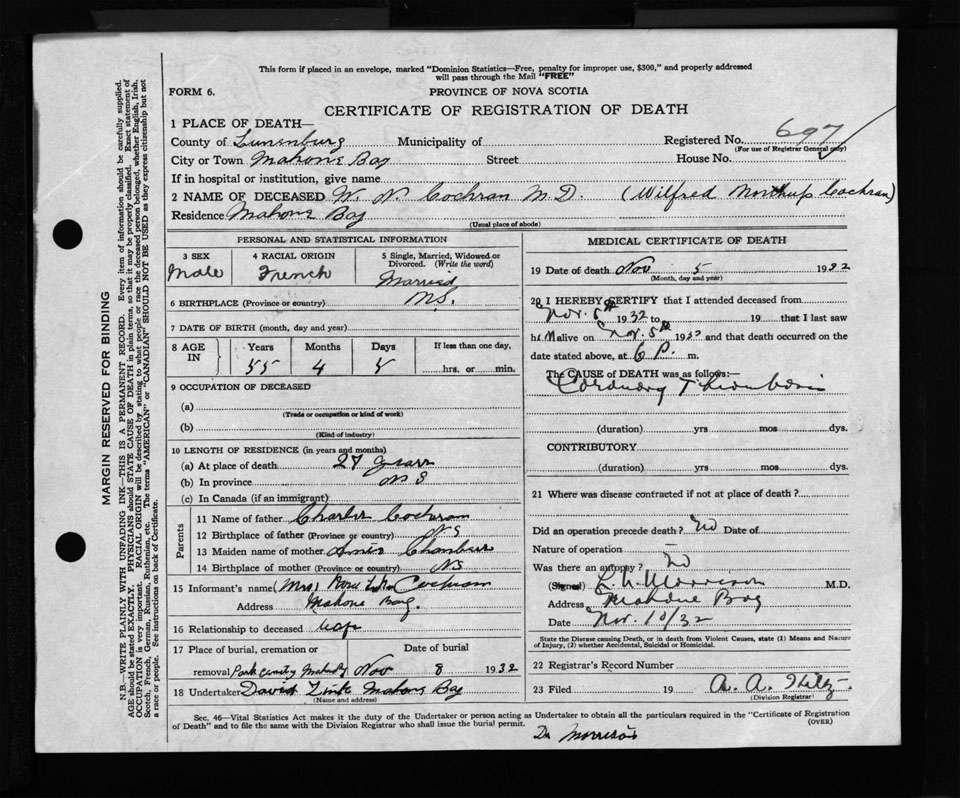 This form if placed in an envelope, marked "Dominion Statistics—Free, penalty for improper use, $300," and properly addressed
will pass through the Mail "FREE"
FORM 6. PROVINCE OF NOVA SCOTIA
CERTIFICATE OF REGISTRATION OF DEATH
1 PLACE OF DEATH—
County of Lunenburg Municipality of Registered No. 697
(For use of Registrar General only)
City or Town Mahone Bay Street House No.
If in hospital or institution, give name
2 NAME OF DECEASED W. N. Cochran M.D. (Wilfred Northup Cochran)
Residence Mahone Bay
(Usual place of abode)
PERSONAL AND STATISTICAL INFORMATION
3 SEX 4 RACIAL ORIGIN 5 Single, Married, Widowed or Divorced. (Write the word)
Male French Married
6 BIRTHPLACE (Province or country) N.S.
7 DATE OF BIRTH (month, day and year)
8 AGE IN Years Months Days If less than one day,
55 4 5 hrs. or min.
9 OCCUPATION OF DECEASED
(a)
(Trade or occupation or kind of work)
(b)
(Kind of industry)
10 LENGTH OF RESIDENCE (in years and months)
(a) At place of death 27 years
(b) In province N S
(c) In Canada (if an immigrant)
Parents
11 Name of father Charles Cochran
12 Birthplace of father (Province or country) N S
13 Maiden name of mother Chambers
14 Birthplace of mother (Province or country) NS
15 Informant's name (Mrs) Cochran
Address Mahone Bay.
16 Relationship to deceased wife
17 Place of burial, cremation or Date of burial
removal Park Cemetery Mahone Bay Nov 8 1932
18 Undertaker David Zinck Mahone Bay
(Name and address)
MEDICAL CERTIFICATE OF DEATH
19 Date of death Nov 5 1932
(Month, day and year)
20 I HEREBY CERTIFY that I attended deceased from
Nov. 5th 1932 to 19 that I last saw
him alive on Nov. 5th 1932 and that death occurred on the
date stated above, at 6 P. m.
The CAUSE OF DEATH was as follows:—
Coronary Thrombosis
(duration) yrs mos dys.
CONTRIBUTORY
(duration) yrs mos dys.
21 Where was disease contracted if not at place of death?
Did an operation precede death? No Date of
Nature of operation
Was there an autopsy? No
(Signed) Morrison M.D.
Address Mahone Bay
Date Nov. 10/32
State the Disease causing Death, or in death from Violent Causes, state (1) Means and Nature
of Injury, (2) whether Accidental, Suicidal or Homicidal.
22 Registrar's Record Number
23 Filed 19
(Division Registrar)
Sec. 46—Vital Statistics Act makes it the duty of the Undertaker or person acting as Undertaker to obtain all the particulars required in the "Certificate of Registration
of Death" and to file the same with the Division Registrar who shall issue the burial permit. (OVER)
Dr Morrison
MARGIN RESERVED FOR BINDING
N.B.—WRITE PLAINLY WITH UNFADING INK—THIS IS A PERMANENT RECORD. Every item of information should be carefully supplied.
AGE should be stated EXACTLY. PHYSICIANS should STATE CAUSE OF DEATH in plain terms, so that it may be properly classified. Exact statement of
OCCUPATION is very important. RACIAL ORIGIN will be described by stating to what people or race the deceased person belonged, whether English, Irish,
Scotch, French, German, Russian, Ruthenian, etc. The terms "AMERICAN" or "CANADIAN" SHOULD NOT BE USED as they express citizenship but not
a race or people. See instructions on back of Certificate.